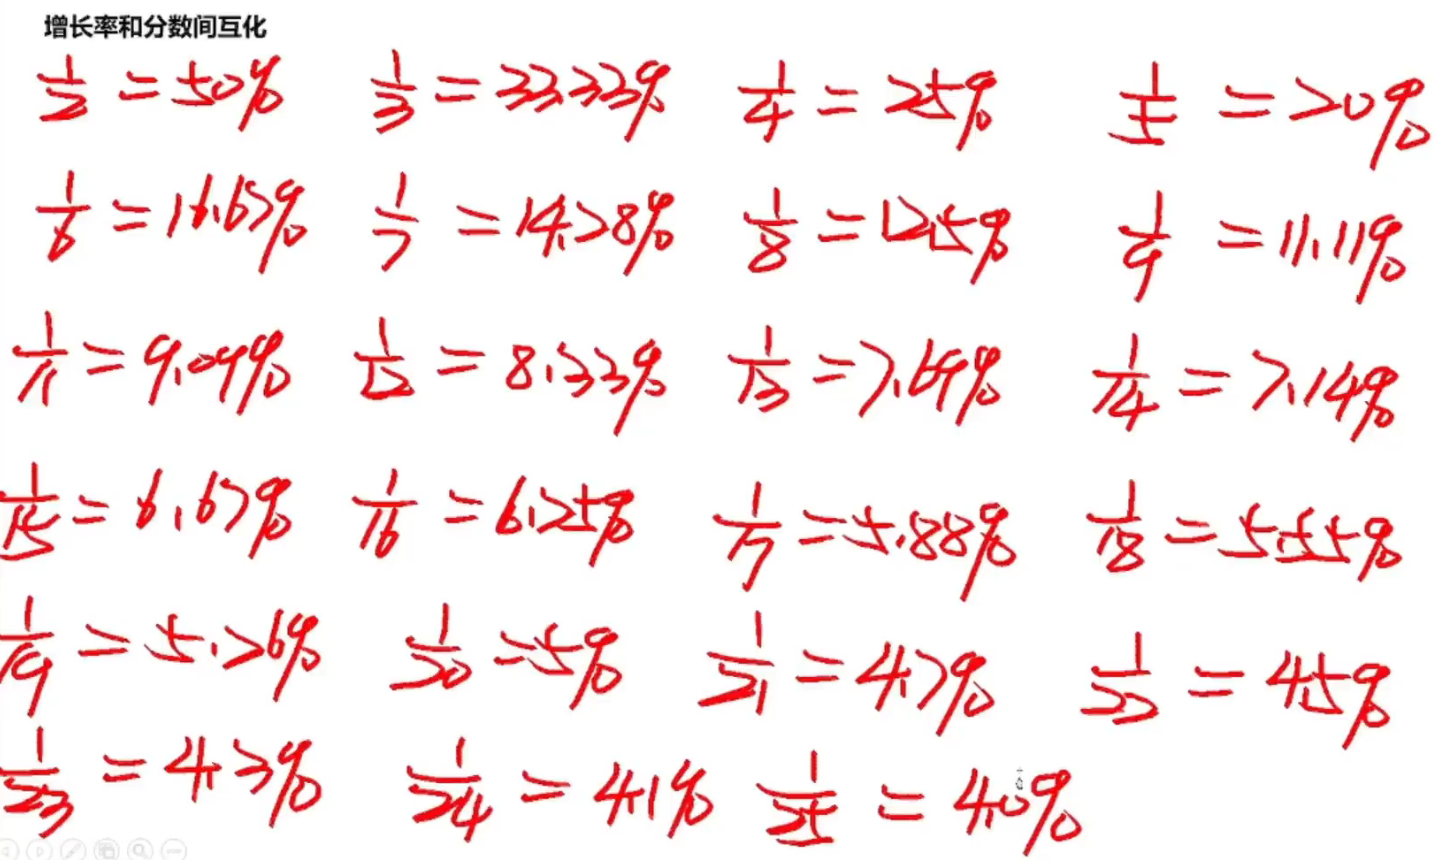 增长率和分数间互化
1/2 = 50% 1/3 = 33.33% 1/4 = 25% 1/5 = 20%
1/6 = 16.67% 1/7 = 14.28% 1/8 = 12.5% 1/9 = 11.11%
1/11 = 9.09% 1/12 = 8.33% 1/13 = 7.69% 1/14 = 7.14%
1/15 = 6.67% 1/16 = 6.25% 1/17 = 5.88% 1/18 = 5.55%
1/19 = 5.26% 1/20 = 5% 1/21 = 4.7% 1/22 = 4.5%
1/23 = 4.3% 1/24 = 4.1% 1/25 = 4.0%